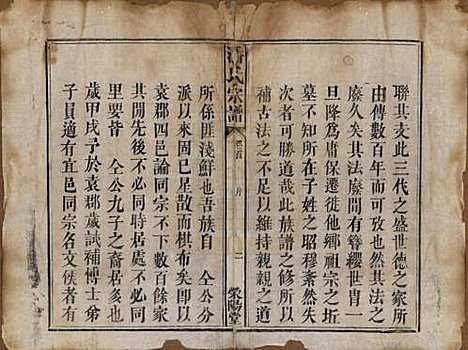 聯其支此三代之盛世徳之家所
由傳數百年而可攷也然其法之
廢久矣其法廢間有簪纓世胄一
旦降為庸保遷徙他鄉類宗之坵
墓不知所在子姓之昭穆紊然失
次者可勝道哉此族譜之修所以
補古法之不足以維持親親之
氏宗譜
卷首
序
二
滎陽堂
所係匪淺鮮也吾族自 仝公分
派以來固已星散而棋布矣即以
袁郡四邑論同宗不下數百餘家
其間先後不必同時居處不必同
里要皆 仝公九子之裔居多也
歲甲戌予於袁郡歲試補博士弟
子員適有宜邑同宗名文侯者有